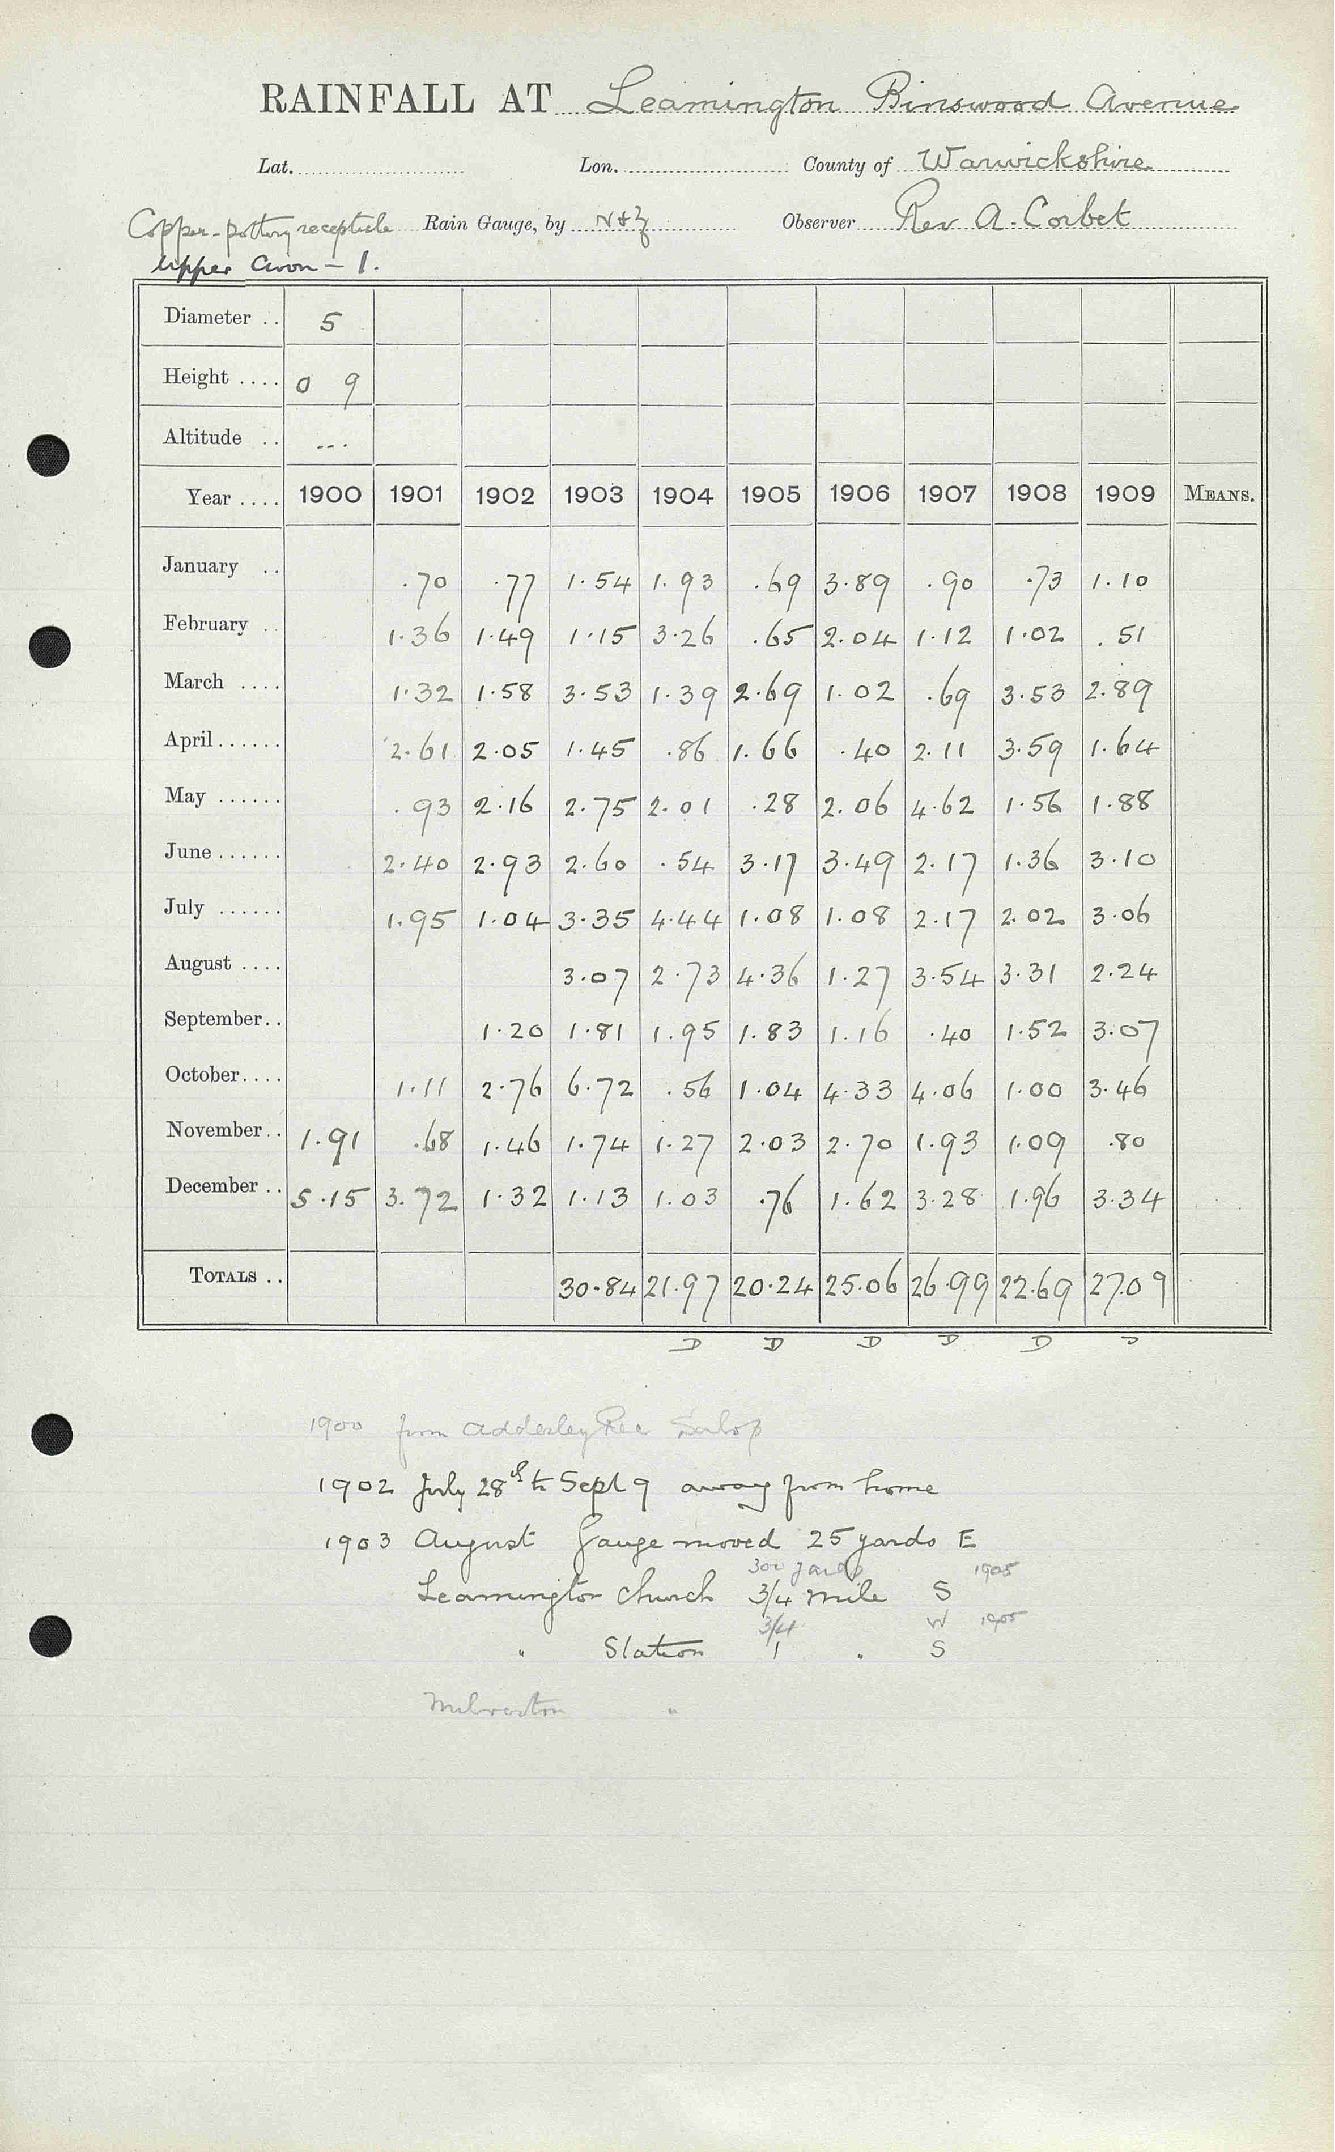 RAINFALL AT Leamington Binswood Avenue
Lat. Lon. County of Warwickshire
Copper-pottery receptacle Rain Gauge, by N & Z Observer Rev A. Corbet
Upper Avon - 1.
Diameter .. 5
Height .... 0 9
Altitude .. ---
Year .... 1900 1901 1902 1903 1904 1905 1906 1907 1908 1909 MEANS.
January .. .70 .77 1.54 1.93 .69 3.89 .90 .73 1.10
February .. 1.36 1.49 1.15 3.26 .65 2.04 1.12 1.02 .51
March .... 1.32 1.58 3.53 1.39 2.69 1.02 .69 3.53 2.89
April...... 2.61 2.05 1.45 .86 1.66 .40 2.11 3.59 1.64
May ...... .93 2.16 2.75 2.01 .28 2.06 4.62 1.56 1.88
June...... 2.40 2.93 2.60 .54 3.17 3.49 2.17 1.36 3.10
July ...... 1.95 1.04 3.35 4.44 1.08 1.08 2.17 2.02 3.06
August .... 3.07 2.73 4.36 1.27 3.54 3.31 2.24
September.. 1.20 1.81 1.95 1.83 1.16 .40 1.52 3.07
October.... 1.11 2.76 6.72 .56 1.04 4.33 4.06 1.00 3.46
November.. 1.91 .68 1.46 1.74 1.27 2.03 2.70 1.93 1.09 .80
December .. 5.15 3.72 1.32 1.13 1.03 .76 1.62 3.28 1.96 3.34
TOTALS .. 30.84 21.97 20.24 25.06 26.99 22.69 27.09
D D D D D D
1900 from Adderley Rec Salop
1902 July 28th to Sept 9 away from home
1903 August Gauge moved 25 yards E
300 yards 1905
Leamington Church 3/4 mile S
3/4 W 1905
" Station 1 . S
Milverton "